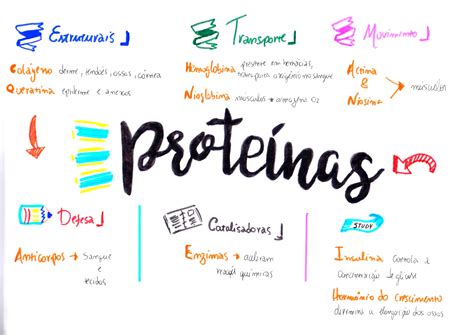 Estruturais
Colágeno derme, tendões, ossos, córnea
Queratina epiderme e anexos
Transporte
Hemoglobina presente em hemácias,
transporta oxigênio no sangue
Mioglobina músculos → armazena O2
Movimento
Actina
&
Miosina
músculos
proteínas
Defesa
Anticorpos → Sangue
e
tecidos
Catalisadoras
Enzimas → aceleram
reações químicas
STUDY
Insulina controla a
concentração de glicose
Hormônio do crescimento
determina a elongação dos ossos